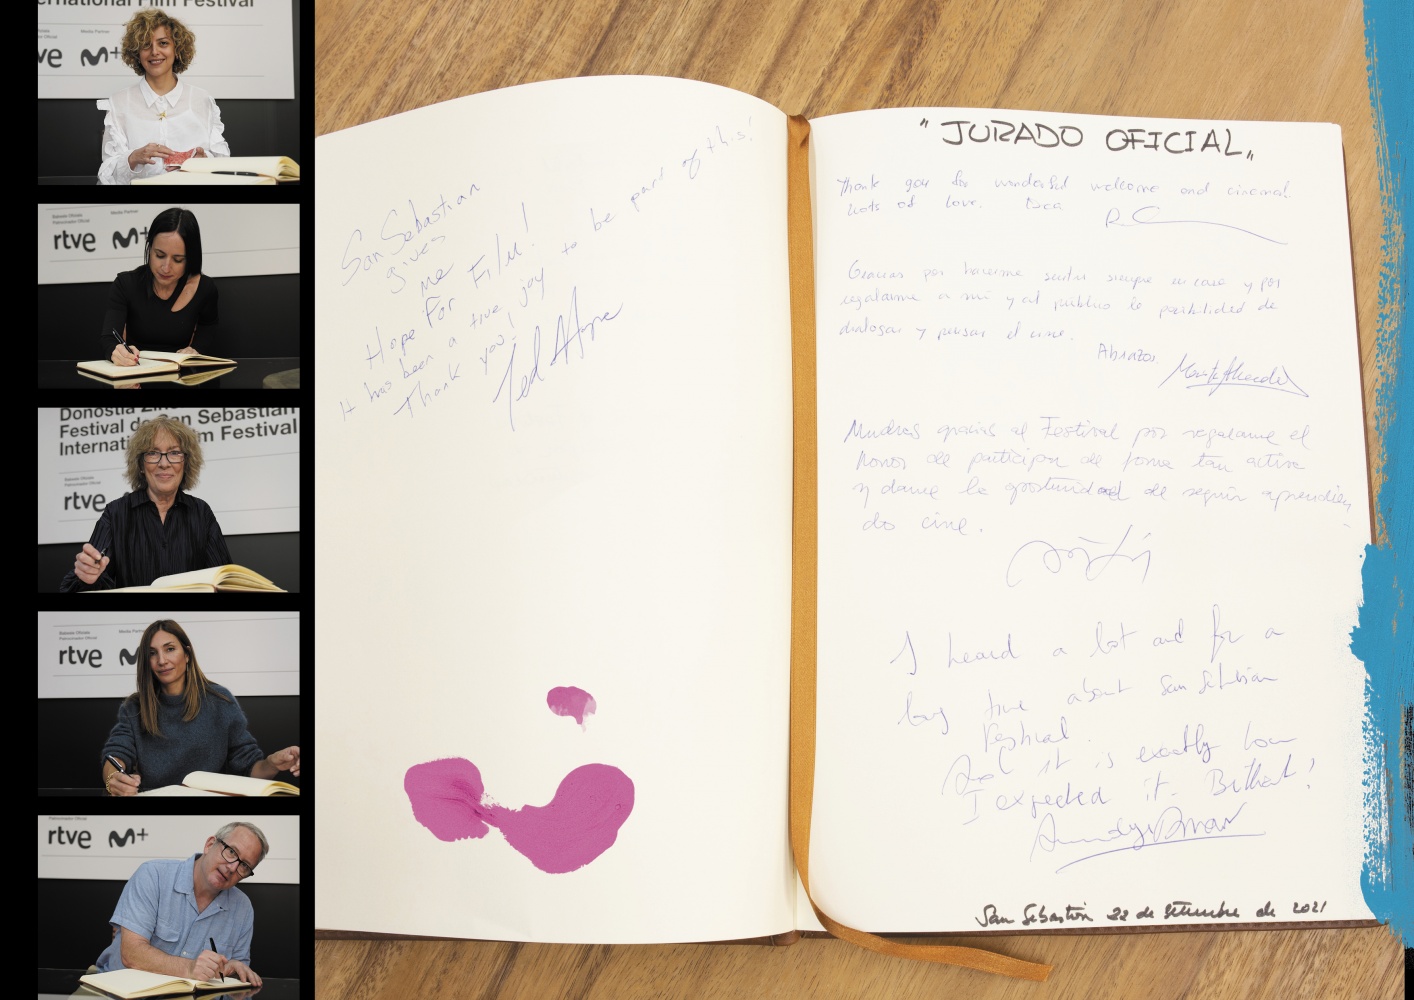 ernational Film Festival
Media Partner
ve M+
Babesle Ofiziala
Patrocinador Oficial
Media Partner
rtve M+
Donostia Zine
Festival de San Sebastián
International Film Festival
rtve
Babesle Ofiziala
Patrocinador Oficial
Media Partner
rtve M
Patrocinador Oficial
rtve M+
San Sebastian
gives
me
Hope For Film!
It has been a true joy to be part of this!
Thank you!
Ted Hope
"JURADO OFICIAL"
Thank you for wonderful welcome and cinema!
Lots of love.
Gracias por hacerme sentir siempre en casa y por
regalarme a mí y al público la posibilidad de
dialogar y pensar el cine.
Abrazos,
Muchas gracias al Festival por regalarme el
honor de participar de forma tan activa
y darme la oportunidad de seguir aprendien
do cine.
I heard a lot and for a
long time about San Sebastian
Festival.
And it is exactly how
I expected it. Brilliant!
San Sebastián 22 de Setiembre de 2021